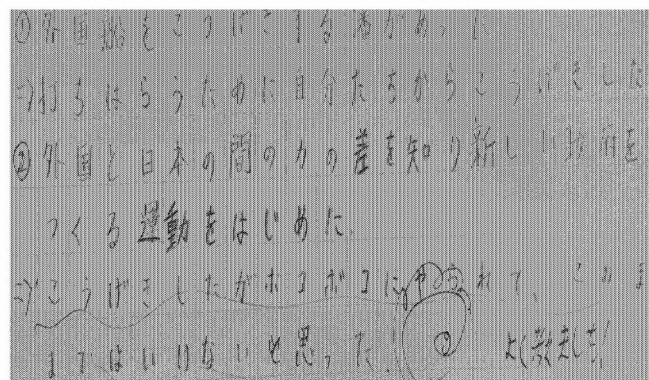 ①外国船をこうげきする藩があった
⇒打ちはらうために自分たちからこうげきした
②外国と日本の間の力の差を知り新しい政府を
つくる運動をはじめた。
⇒こうげきしたがボコボコにやられて、このま
まではいけないと思った! よく教えました!